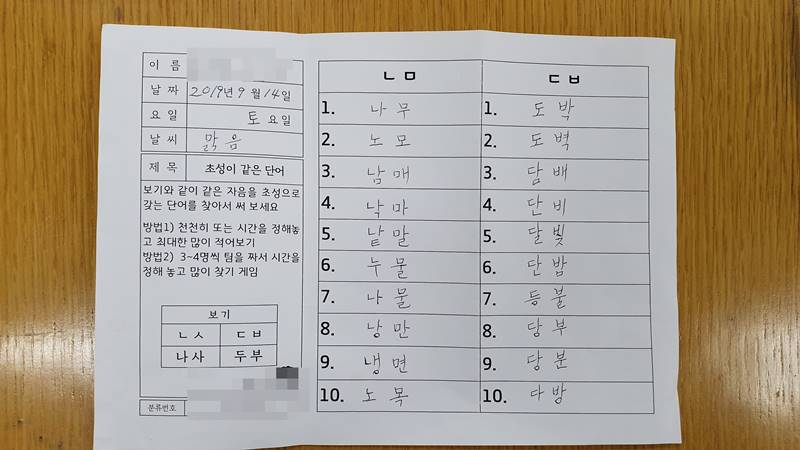 이 름
날 짜 2019년 9 월 14일
요 일 토 요 일
날 씨 맑 음
제 목 초성이 같은 단어
보기와 같이 같은 자음을 초성으로
갖는 단어를 찾아서 써 보세요
방법1) 천천히 또는 시간을 정해놓
고 최대한 많이 적어보기
방법2) 3~4명씩 팀을 짜서 시간을
정해 놓고 많이 찾기 게임
보 기
ㄴ ㅅ ㄷ ㅂ
나 사 두 부
분류번호
ㄴ ㅁ ㄷ ㅂ
1. 나 무 1. 도 박
2. 노 모 2. 도 벽
3. 남 매 3. 담 배
4. 낙 마 4. 단 비
5. 낱 말 5. 달 빛
6. 누 물 6. 단 밥
7. 나 물 7. 등 불
8. 낭 만 8. 당 부
9. 냉 면 9. 당 분
10. 노 목 10. 다 방